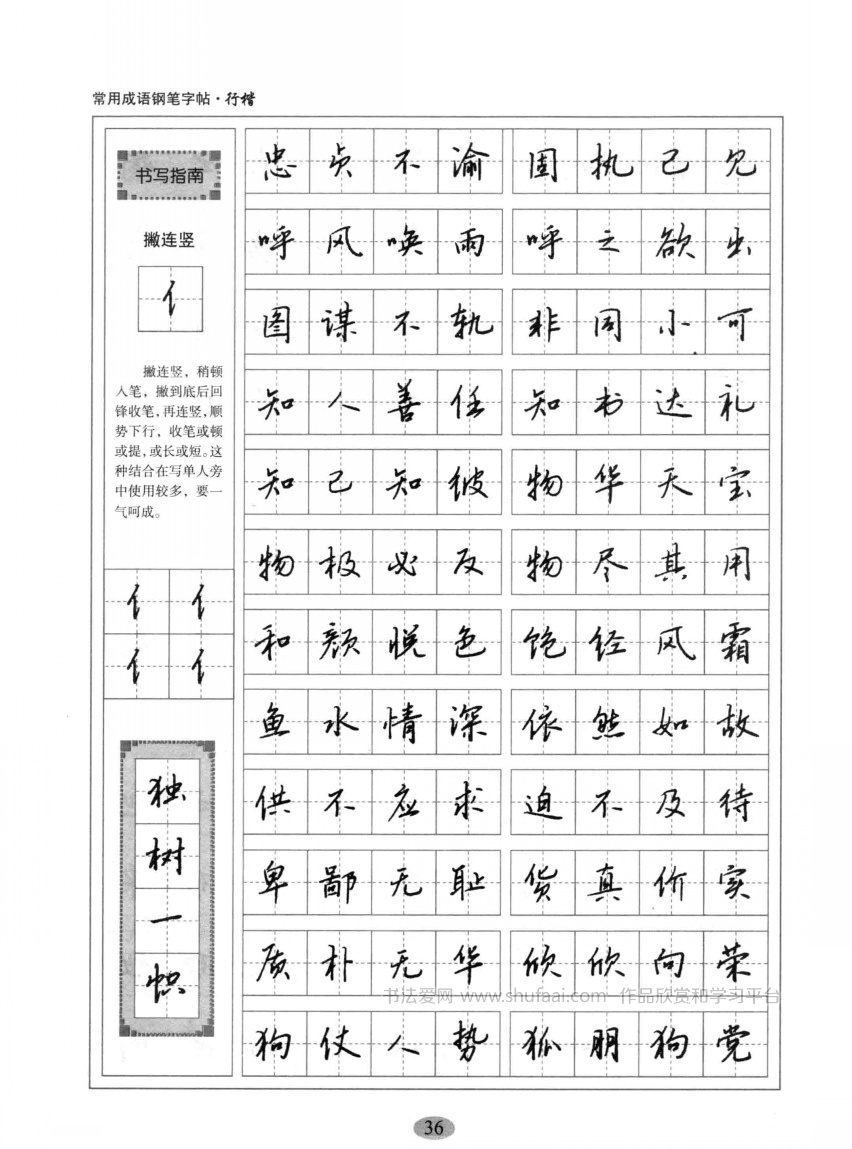 常用成语钢笔字帖·行楷
书写指南
撇连竖
亻
撇连竖，稍顿
入笔，撇到底后回
锋收笔，再连竖，顺
势下行，收笔或顿
或提，或长或短。这
种结合在写单人旁
中使用较多，要一
气呵成。
亻 亻
亻 亻
独
树
一
帜
忠贞不渝 固执己见
呼风唤雨 呼之欲出
图谋不轨 非同小可
知人善任 知书达礼
知己知彼 物华天宝
物极必反 物尽其用
和颜悦色 饱经风霜
鱼水情深 依然如故
供不应求 迫不及待
卑鄙无耻 货真价实
质朴无华 欣欣向荣
书法爱网 www.shufaai.com 作品欣赏和学习平台
狗仗人势 狐朋狗党
36